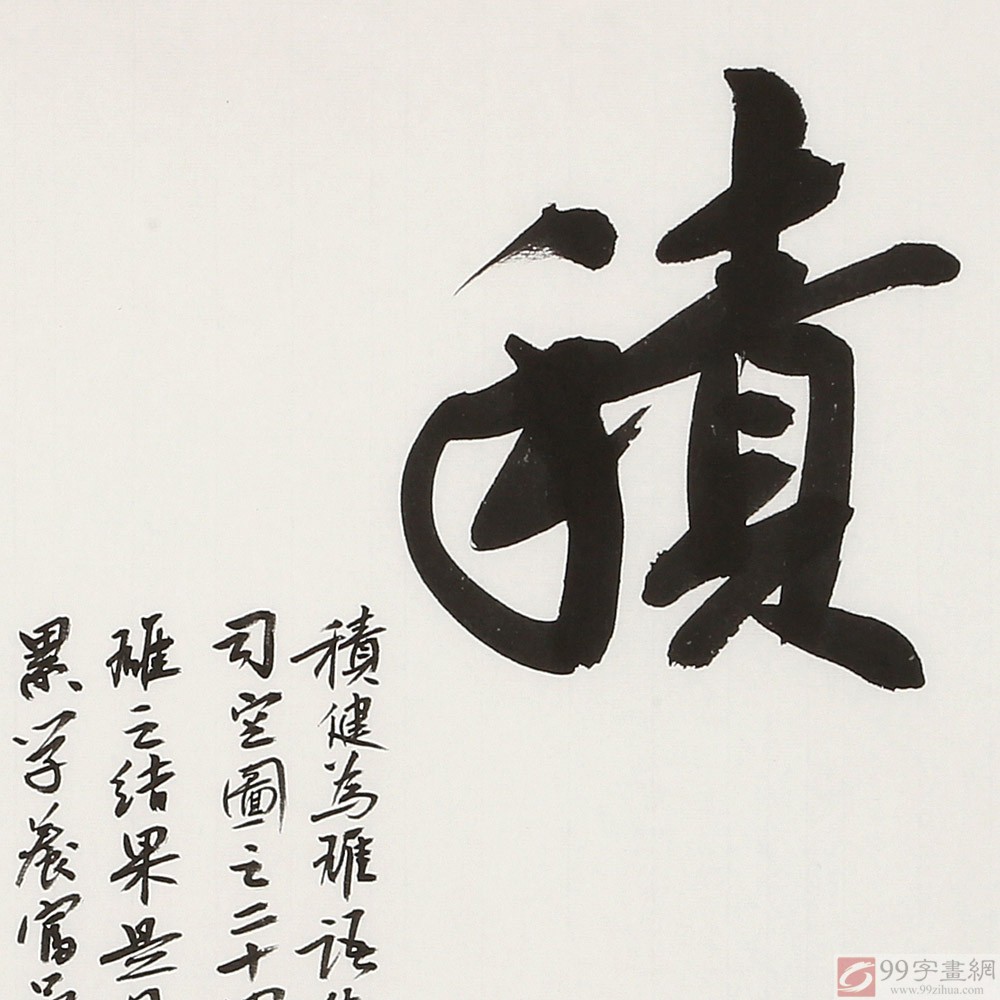 積
積健為雄語
司空圖之二十
雄之結果是
累学養富
99字畫網
www.99zihua.com